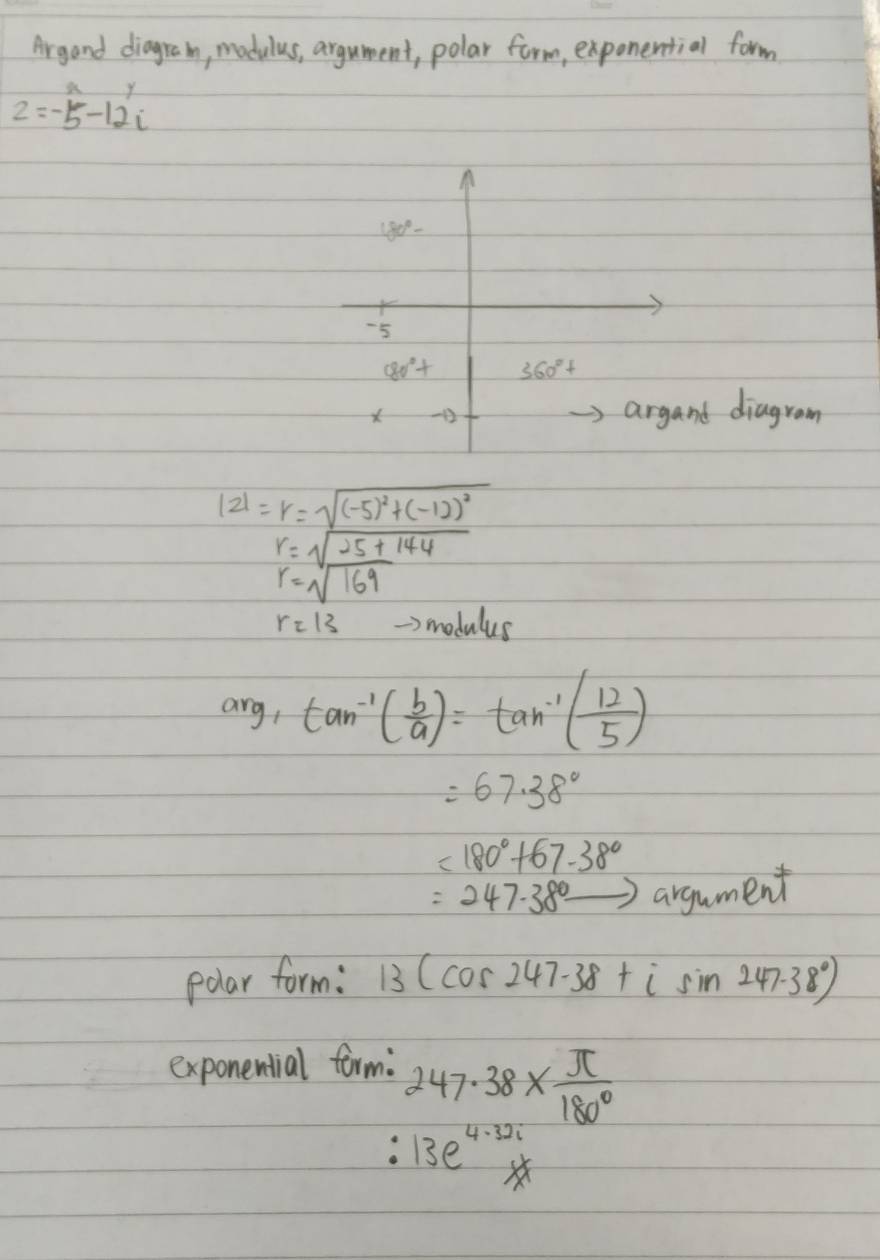 Argand diagram, modulus, argument, polar form, exponential form
x y
z = -5 - 12i
180° -
-5
180° +
360° +
x
-12
→ argand diagram
|z| = r = √(-5)² + (-12)²
r = √25 + 144
r = √169
r = 13 → modulus
arg, tan⁻¹(b/a) = tan⁻¹(12/5)
= 67.38°
= 180° + 67.38°
= 247.38° → argument
polar form: 13 (cos 247.38 + i sin 247.38°)
exponential form: 247.38 × π/180°
: 13e^4.32i